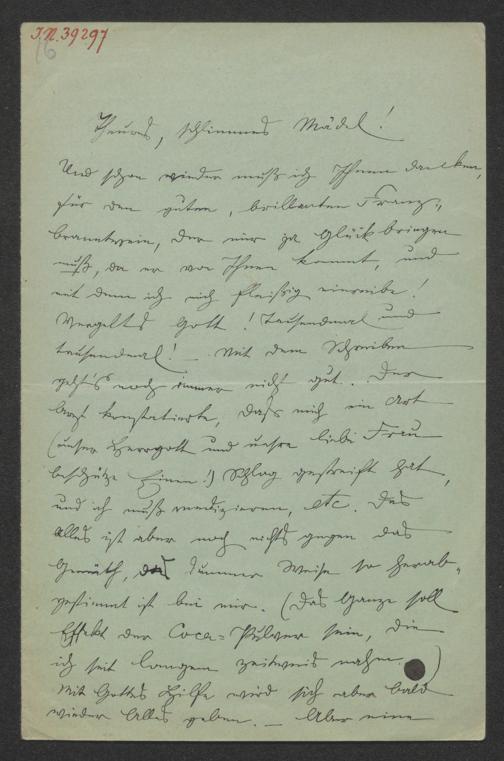 I.N. 39297
16
Theures, schlimmes Mädel!
Und schon wieder muß ich Ihnen danken,
für den guten, brillanten Franz-
branntwein, der mir ja Glück bringen
muß, da er von Ihnen kommt, und
mit dem ich mich fleißig einreibe!
Vergelts Gott! Tausendmal und
tausendmal! – Mit dem Schreiben
geht's noch immer nicht gut. Der
Arzt konstatierte, daß mich ein Art
(unser Herrgott und unsre liebe Frau
beschütze Einen!) Schlag gestreift hat,
und ich muß medizinieren, etc. Das
Alles ist aber noch nichts gegen das
Gemüth, das dummer Weise so herab-
gestimmt ist bei mir. (Das Ganze soll
Effekt der Coca-Pulver sein, die
ich seit langem zeitweis nahm.)
Mit Gottes Hilfe wird sich aber bald
wieder Alles geben. – Aber eine